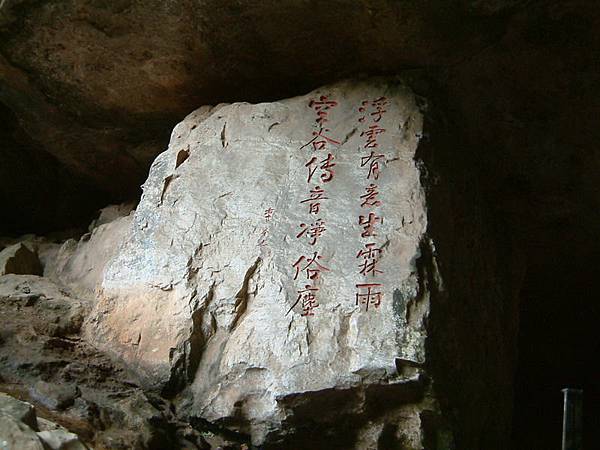 浮雲有意生霖雨
空谷传音淨俗塵